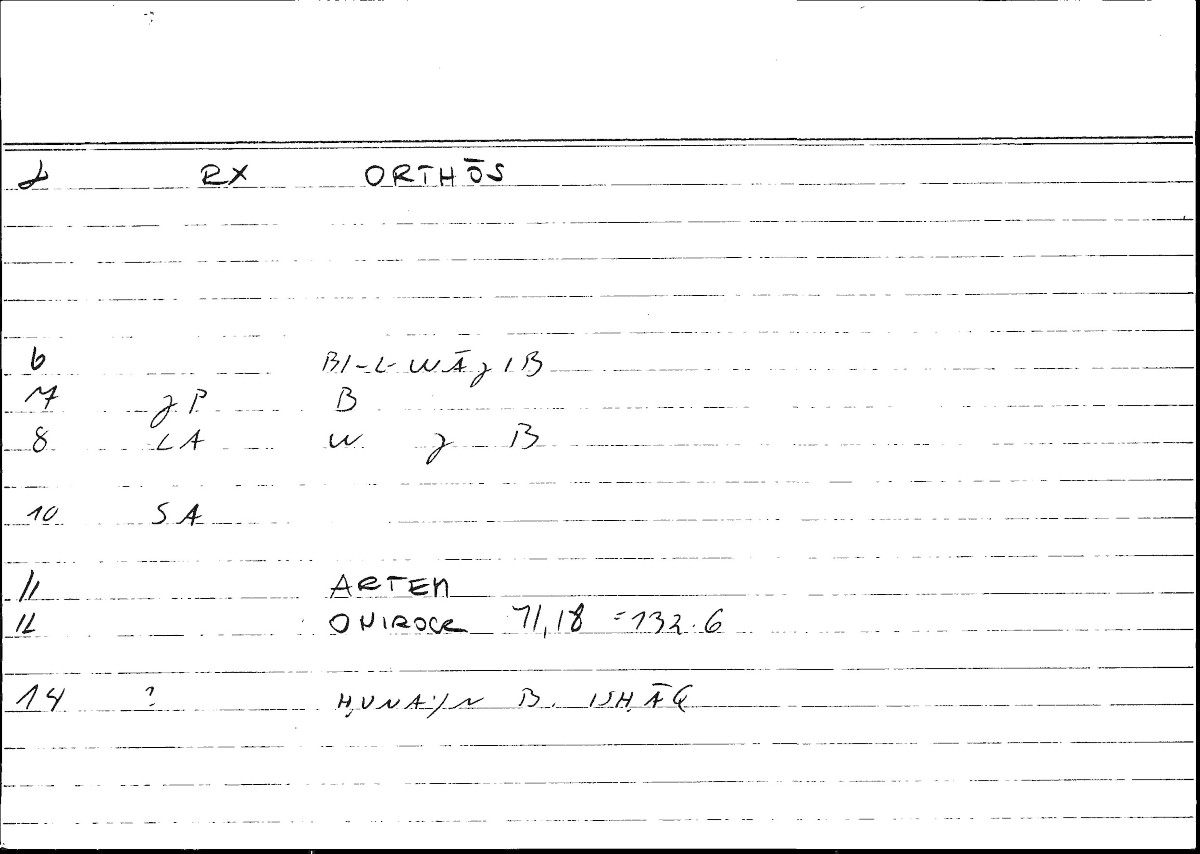 RX ORTHŌS
6 BI-L-WĀʒIB
7 ʒP B
8 LA W ʒ B
10 SA
11 ARTEM
12 ONIROCR 71,18 = 132.6
14 ? ḤUNAYN B. ISḤĀQ